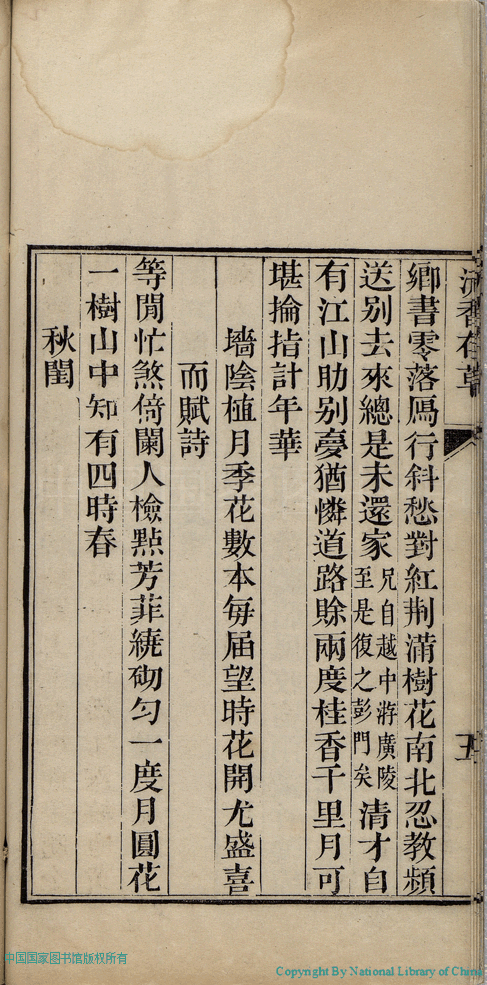 鄉書零落鴈行斜愁對紅荆滿樹花南北忍教頻
送別去來總是未還家兄自越中游廣陵至是復之彭門矣清才自
有江山助別憂猶憐道路賖兩度桂香千里月可
堪掄指計年華
墻陰植月季花數本每届望時花開尤盛喜
而賦詩
等閒忙煞倚闌人檢點芳菲繞砌勻一度月圓花
一樹山中知有四時春
秋閨
五
中国国家图书馆版权所有
Copyright By National Library of China